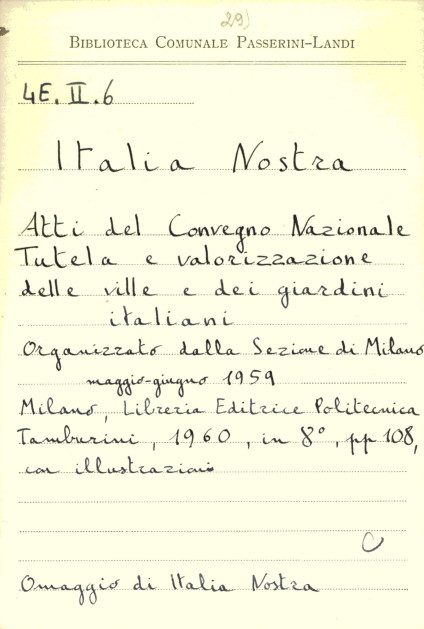 29)
BIBLIOTECA COMUNALE PASSERINI-LANDI
4E. II. 6
Italia Nostra
Atti del Convegno Nazionale
Tutela e valorizzazione
delle ville e dei giardini
italiani
Organizzato dalla Sezione di Milano
maggio-giugno 1959
Milano, Libreria Editrice Politecnica
Tamburini, 1960, in 8°, pp 108,
con illustrazioni
C
Omaggio di Italia Nostra